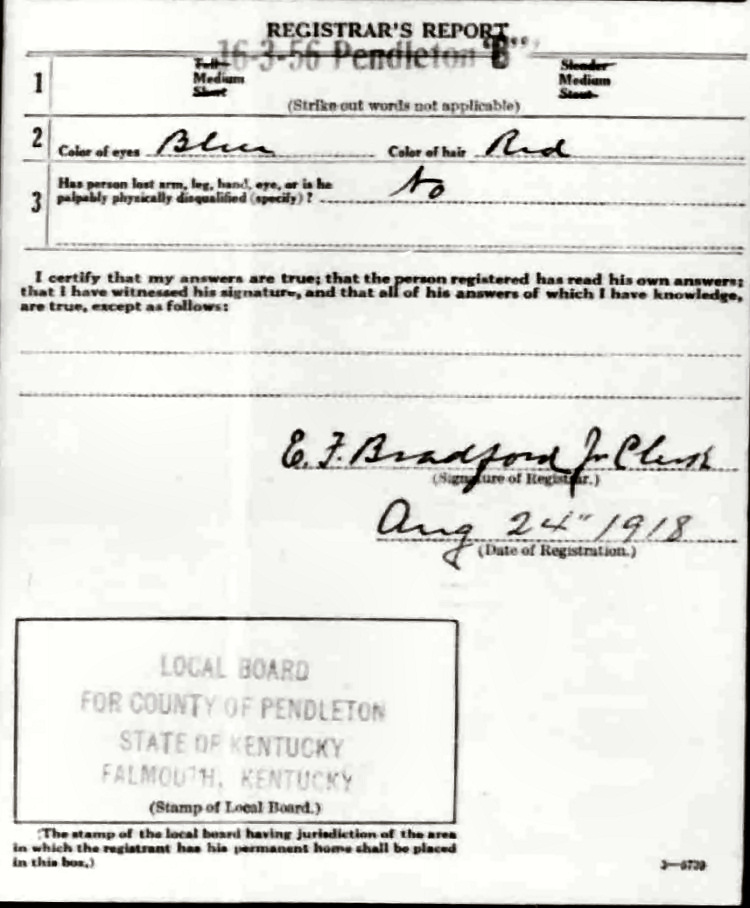 REGISTRAR'S REPORT
16-3-56 Pendleton "B"
1
Tall Slender
Medium Medium
Short Stout
(Strike out words not applicable)
2 Color of eyes Blue Color of hair Red
3 Has person lost arm, leg, hand, eye, or is he
palpably physically disqualified (specify)? No
I certify that my answers are true; that the person registered has read his own answers;
that I have witnessed his signature, and that all of his answers of which I have knowledge,
are true, except as follows:
E. F. Bradford Jr Clerk
(Signature of Registrar.)
Aug 24" 1918
(Date of Registration.)
LOCAL BOARD
FOR COUNTY OF PENDLETON
STATE OF KENTUCKY
FALMOUTH, KENTUCKY
(Stamp of Local Board.)
(The stamp of the local board having jurisdiction of the area
in which the registrant has his permanent home shall be placed
in this box.)
3—6739